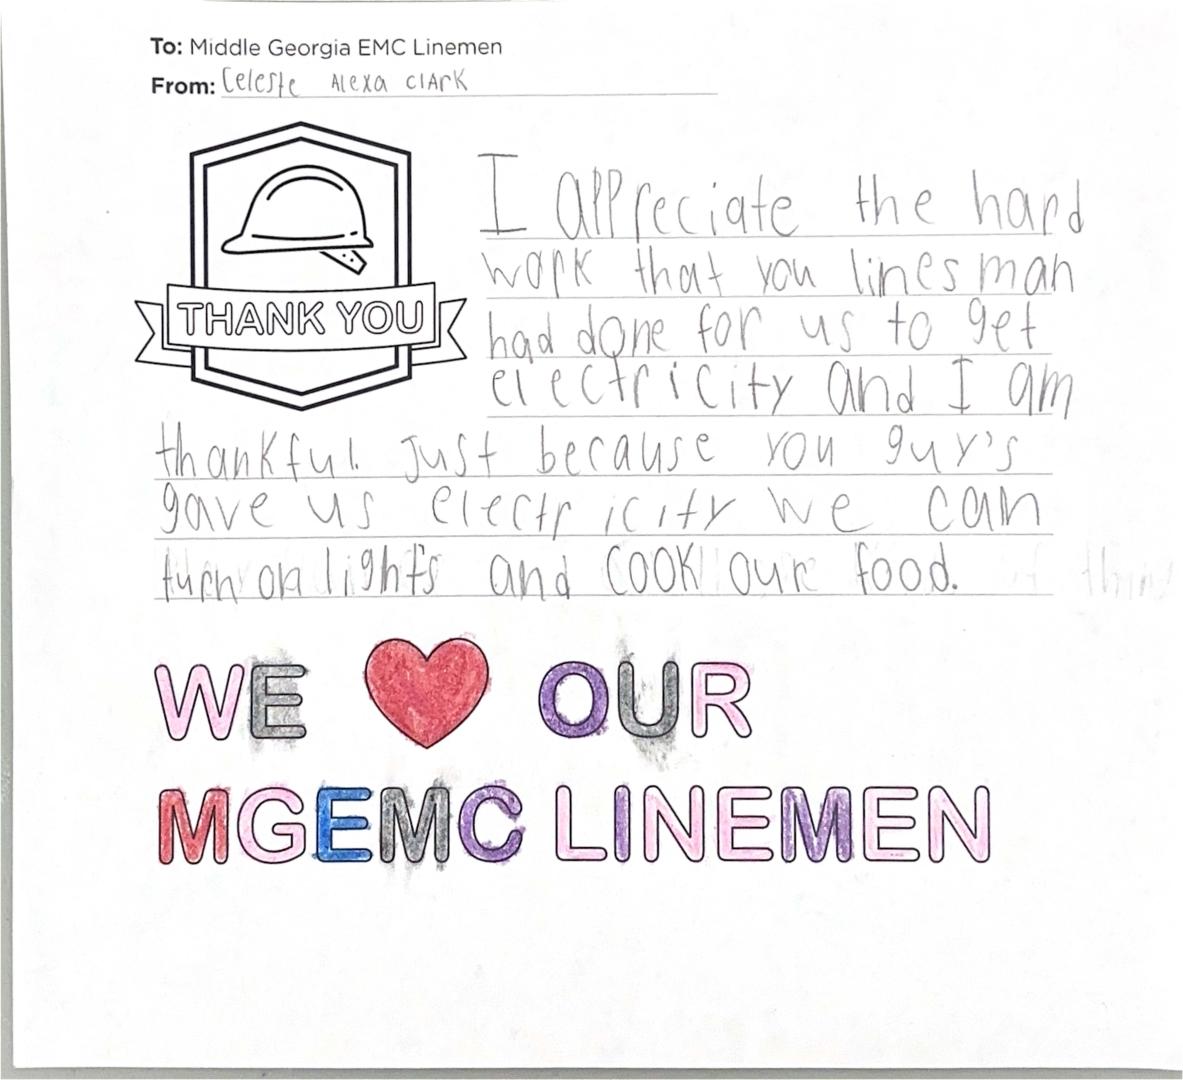 To: Middle Georgia EMC Linemen
From: Celeste Alexa Clark
THANK YOU
I appreciate the hard
work that you lines man
had done for us to get
electricity and I am
thankful. Just because you guy's
gave us electricity we can
turn on light's and cook our food.
WE ❤ OUR
MGEMC LINEMEN